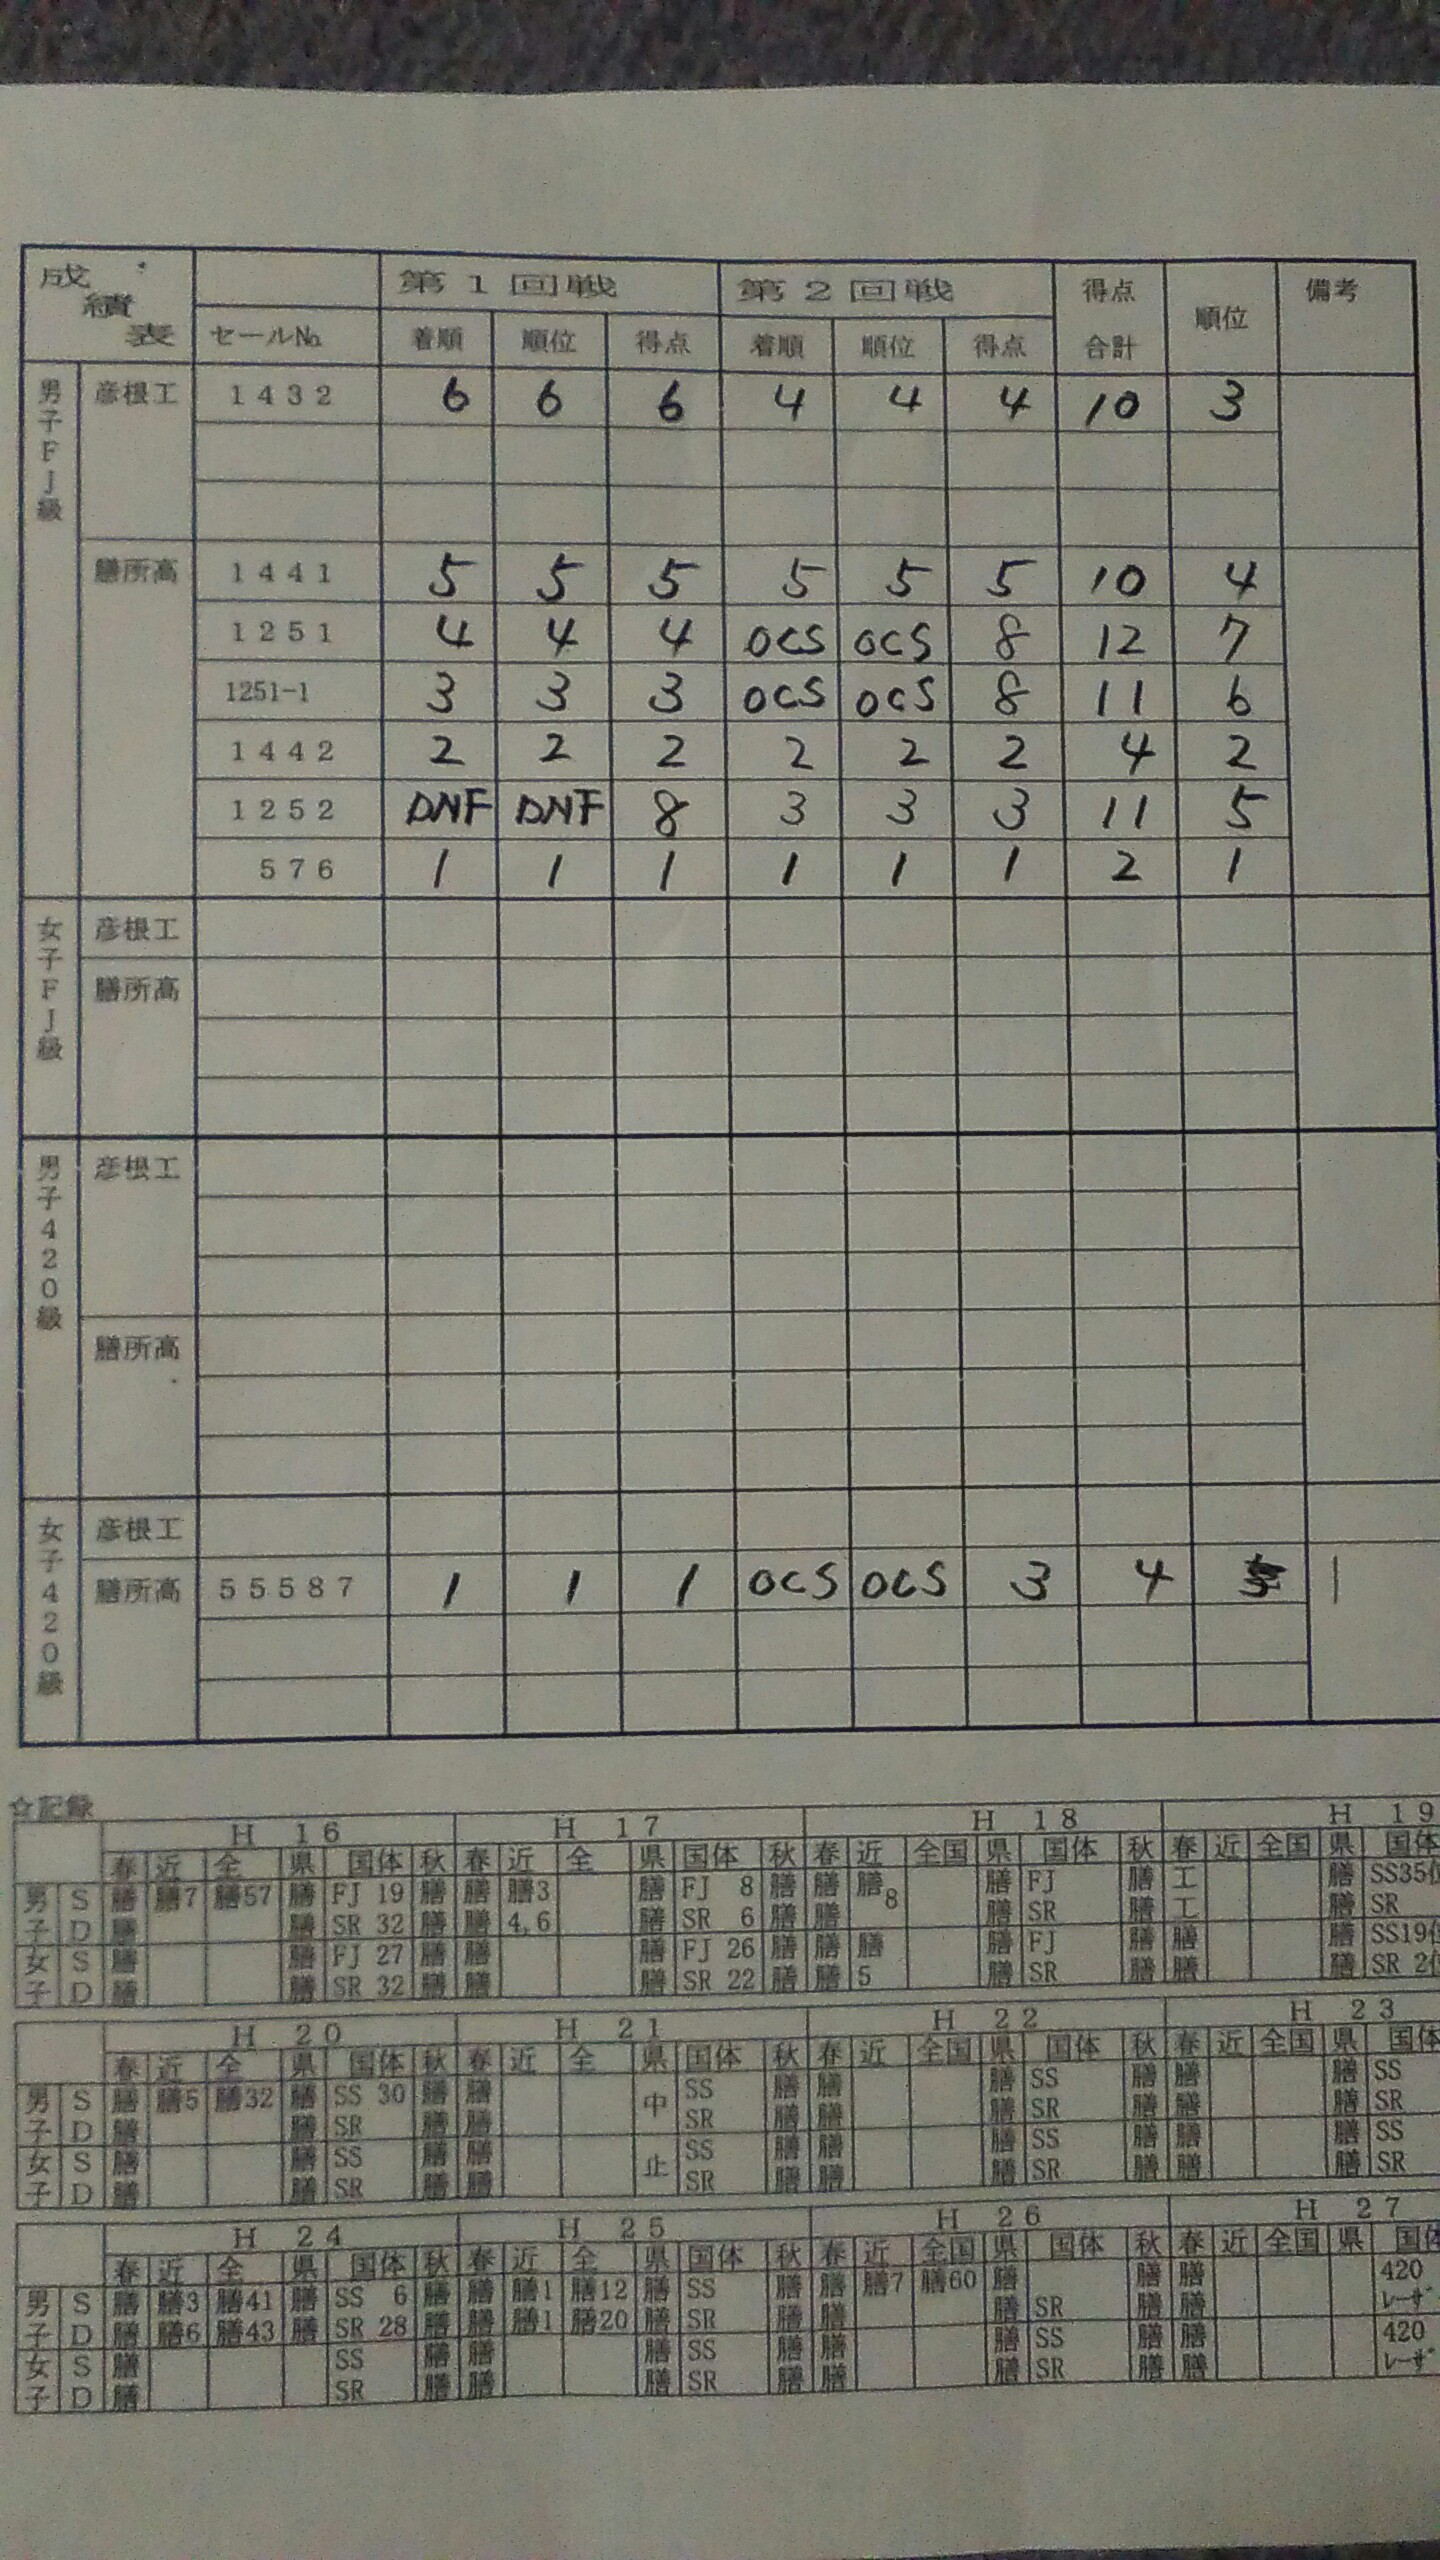 成績表 第1回戦 第2回戦 得点合計 順位 備考
セール№ 着順 順位 得点 着順 順位 得点
男子FJ級 彦根工 1432 6 6 6 4 4 4 10 3
膳所高 1441 5 5 5 5 5 5 10 4
1251 4 4 4 OCS OCS 8 12 7
1251-1 3 3 3 OCS OCS 8 11 6
1442 2 2 2 2 2 2 4 2
1252 DNF DNF 8 3 3 3 11 5
576 1 1 1 1 1 1 2 1
女子FJ級 彦根工
膳所高
男子420級 彦根工
膳所高
女子420級 彦根工
膳所高 55587 1 1 1 OCS OCS 3 4 1
☆記録
H 16 H 17 H 18 H 19
春 近 全 県 国体 秋 春 近 全 県 国体 秋 春 近 全国 県 国体 秋 春 近 全国 県 国体
男子 S 膳 膳7 膳57 膳 FJ 19 膳 膳 膳3 膳 FJ 8 膳 膳 膳8 膳 FJ 膳 工 膳 SS35位
D 膳 膳 SR 32 膳 膳 4,6 膳 SR 6 膳 膳 膳 SR 膳 工 膳 SR
女子 S 膳 膳 FJ 27 膳 膳 膳 FJ 26 膳 膳 膳 膳 FJ 膳 膳 膳 SS19位
D 膳 膳 SR 32 膳 膳 膳 SR 22 膳 膳 5 膳 SR 膳 膳 膳 SR 2位
H 20 H 21 H 22 H 23
春 近 全 県 国体 秋 春 近 全 県 国体 秋 春 近 全国 県 国体 秋 春 近 全国 県 国体
男子 S 膳 膳5 膳32 膳 SS 30 膳 膳 中 SS 膳 膳 膳 SS 膳 膳 膳 SS
D 膳 膳 SR 膳 膳 SR 膳 膳 膳 SR 膳 膳 膳 SR
女子 S 膳 膳 SS 膳 膳 止 SS 膳 膳 膳 SS 膳 膳 膳 SS
D 膳 膳 SR 膳 膳 SR 膳 膳 膳 SR 膳 膳 膳 SR
H 24 H 25 H 26 H 27
春 近 全 県 国体 秋 春 近 全 県 国体 秋 春 近 全国 県 国体 秋 春 近 全国 県 国体
男子 S 膳 膳3 膳41 膳 SS 6 膳 膳 膳1 膳12 膳 SS 膳 膳 膳7 膳60 膳 膳 膳 420
D 膳 膳6 膳43 膳 SR 28 膳 膳 膳1 膳20 膳 SR 膳 膳 膳 SR 膳 膳 ﾚｰｻﾞ
女子 S 膳 SS 膳 膳 膳 SS 膳 膳 膳 SS 膳 膳 420
D 膳 SR 膳 膳 膳 SR 膳 膳 膳 SR 膳 膳 ﾚｰｻﾞ